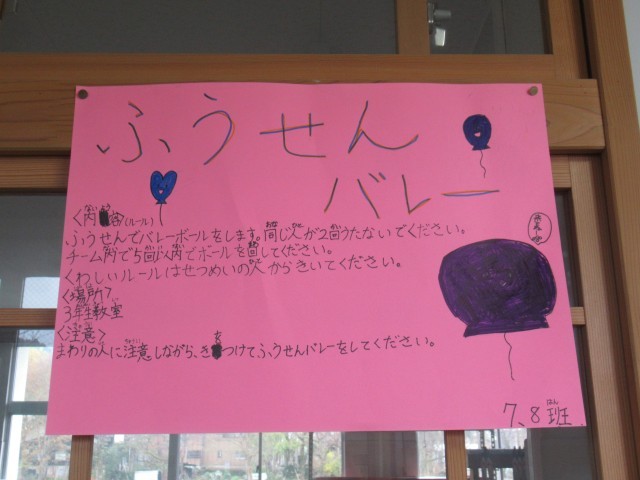 ふうせん
バレー
<内容(ルール)
ふうせんでバレーボールをします。同じ人が2回うたないでください。
チーム内で5回以内でボールを回してください。
くわしいルールはせつめいの人からきいてください。
<場所>
3年生教室
<注意>
まわりの人に注意しながら、きをつけてふうせんバレーをしてください。
7、8班